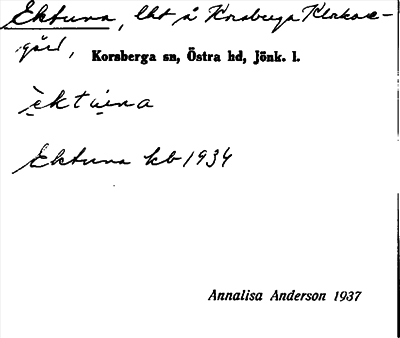 Ektuna, lht å Korsberga Klockare-
gård,
Korsberga sn, Östra hd, Jönk. l.
èktu̠na
Ektuna kb 1934
Annalisa Anderson 1937